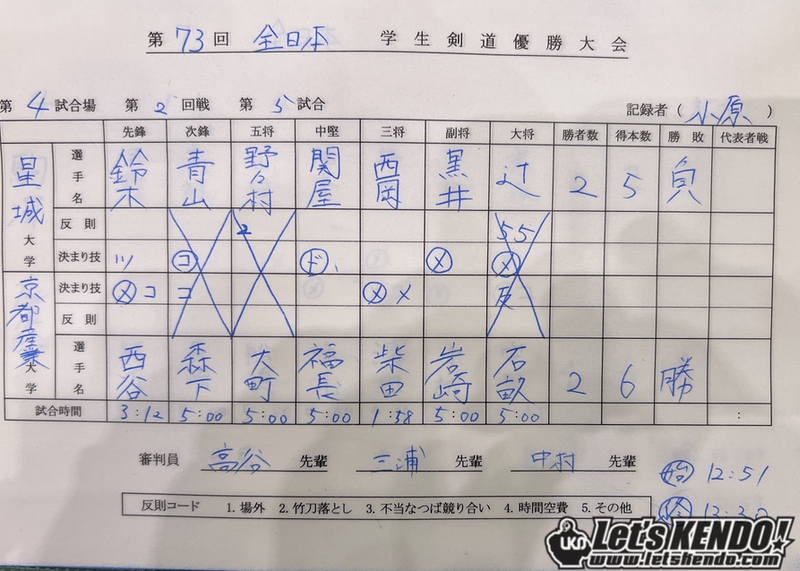 第 73 回 全日本 学生剣道優勝大会
第 4 試合場 第 2 回戦 第 5 試合 記録者 ( 小原 )
先鋒 次鋒 五将 中堅 三将 副将 大将 勝者数 得本数 勝敗 代表者戦
星城大学 選手名 鈴木 青山 野々村 関屋 西岡 黒井 辻 2 5 負
反則 2 55
決まり技 ツ コ ド メ メ
京都産業大学 決まり技 メコ コ メメ 反
反則
選手名 西谷 森下 大町 福長 柴田 岩崎 石畝 2 6 勝
試合時間 3:12 5:00 5:00 5:00 1:58 5:00 5:00 :
審判員 高谷 先輩 三浦 先輩 中村 先輩
始 12:51
終 13:30
反則コード 1. 場外 2. 竹刀落とし 3. 不当なつば競り合い 4. 時間空費 5. その他
LKD Let's KENDO!
www.letskendo.com